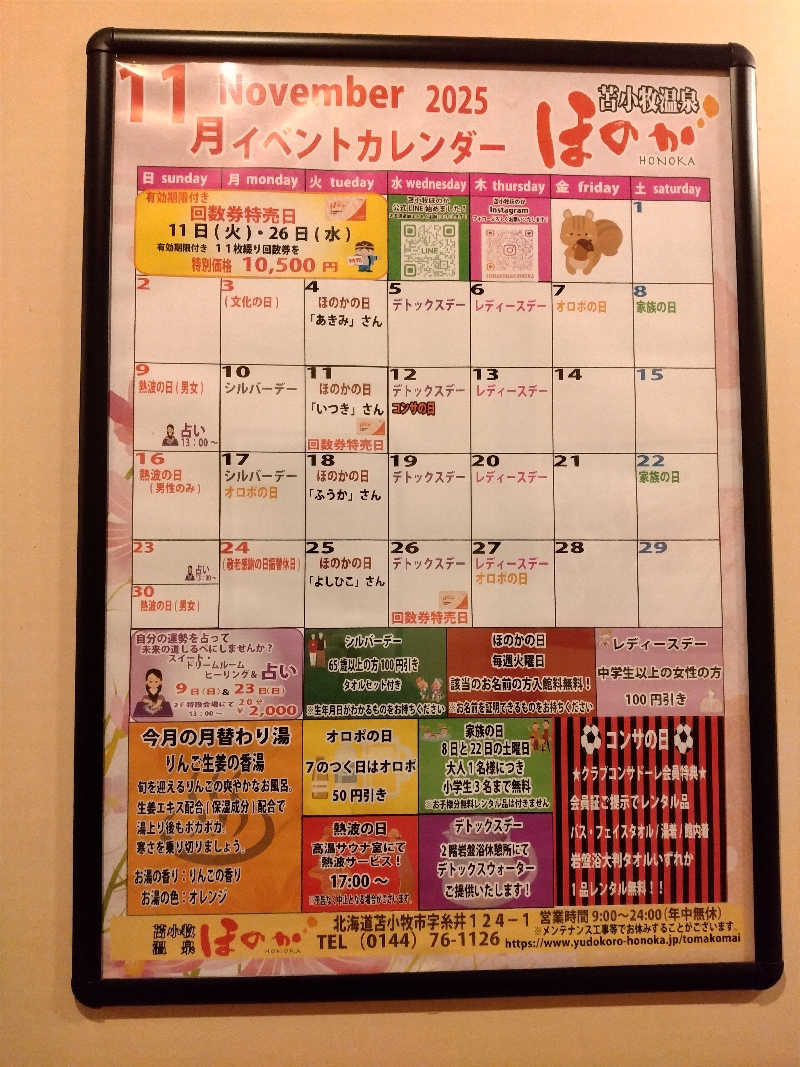 11月 November 2025
イベントカレンダー
苫小牧温泉
ほのか
HONOKA
日 sunday 月 monday 火 tueday 水 wednesday 木 thursday 金 friday 土 saturday
有効期限付き
回数券特売日
11日(火)・26日(水)
有効期限付き 11枚綴り回数券を
特別価格 10,500 円
苫小牧ほのか
公式LINE始めました!
LINE
苫小牧ほのか
Instagram
1
2
3
(文化の日)
4
ほのかの日
「あきみ」さん
5
デトックスデー
6
レディースデー
7
オロポの日
8
家族の日
9
熱波の日(男女)
占い
13:00~
10
シルバーデー
11
ほのかの日
「いつき」さん
回数券特売日
12
デトックスデー
コンサの日
13
レディースデー
14
15
16
熱波の日
(男性のみ)
17
シルバーデー
オロポの日
18
ほのかの日
「ふうか」さん
19
デトックスデー
20
レディースデー
21
22
家族の日
23
占い
13:00~
30
熱波の日(男女)
24
(敬老感謝の日振替休日)
25
ほのかの日
「よしひこ」さん
26
デトックスデー
回数券特売日
27
レディースデー
オロポの日
28
29
自分の運勢を占って
未来の道しるべにしませんか?
スイート・
ドリームルーム
ヒーリング& 占い
9日(日)&23日(日)
2F特設会場にて 20分
13:00~ ¥2,000
シルバーデー
65歳以上の方100円引き
タオルセット付き
※生年月日がわかるものをお持ちください
ほのかの日
毎週火曜日
該当のお名前の方入館料無料!
※お名前を証明できるものをお持ちください
レディースデー
中学生以上の女性の方
100円引き
今月の月替わり湯
りんご生姜の香湯
旬を迎えるりんごの爽やかなお風呂。
生姜エキス配合(保湿成分)配合で
湯上り後もポカポカ。
寒さを乗り切りましょう。
お湯の香り:りんごの香り
お湯の色:オレンジ
オロポの日
7のつく日はオロポ
50円引き
家族の日
8日と22日の土曜日
大人1名様につき
小学生3名まで無料
※お子様分無料レンタル品は付きません
熱波の日
高温サウナ室にて
熱波サービス!
17:00~
※予告なく中止となる場合がございます。
デトックスデー
2階岩盤浴休憩所にて
デトックスウォーター
ご提供いたします!
コンサの日
★クラブコンサドーレ会員特典★
会員証ご提示でレンタル品
バス・フェイスタオル/湯着/館内着
岩盤浴大判タオルいずれか
1品レンタル無料!!
苫小牧温泉 ほのか
HONOKA
北海道苫小牧市字糸井124-1 営業時間 9:00~24:00(年中無休)
※メンテナンス工事等でお休みすることがございます。
TEL (0144) 76-1126 https://www.yudokoro-honoka.jp/tomakomai